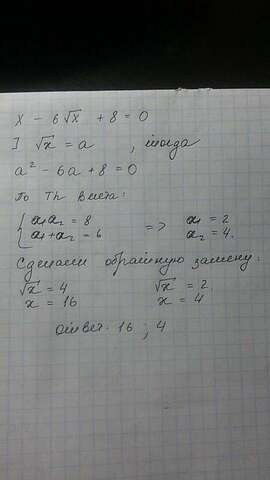 x - 6√x + 8 = 0
] √x = a , тогда
a² - 6a + 8 = 0
По Th Виета:
{ a₁a₂ = 8 => a₁ = 2
a₁ + a₂ = 6 a₂ = 4.
Сделаем обратную замену:
√x = 4 √x = 2.
x = 16 x = 4
Ответ: 16 ; 4